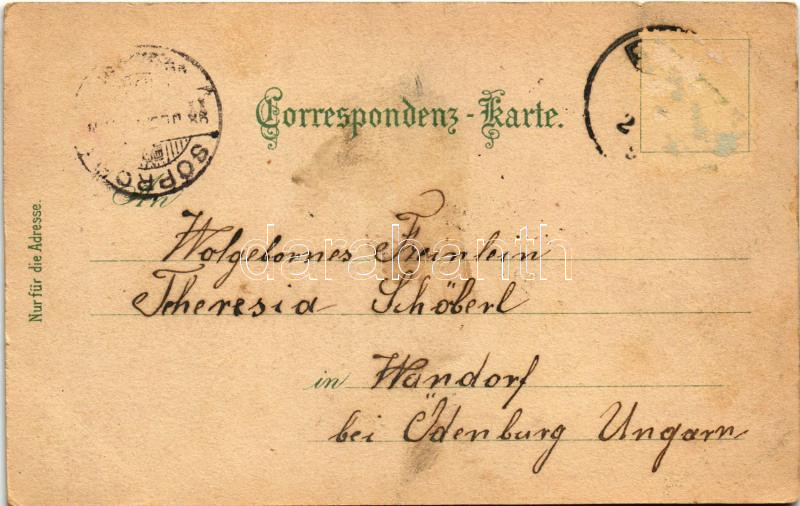 Correspondenz-Karte.
SOPRO
An
Wolgebornes Freinlein
Theresia Schöberl
in Wandorf
bei Ödenburg Ungarn
Nur für die Adresse.
darabanth